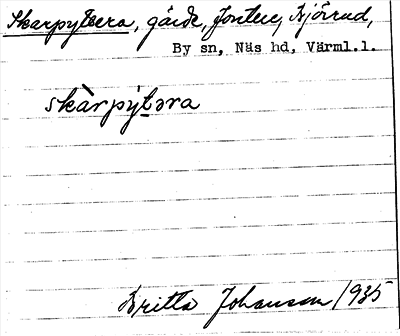 Skarpytera, gärde, Jonten, Bjönrud,
By sn, Näs hd, Värml.l.
skàrpýtəra
Britta Johansson 1935